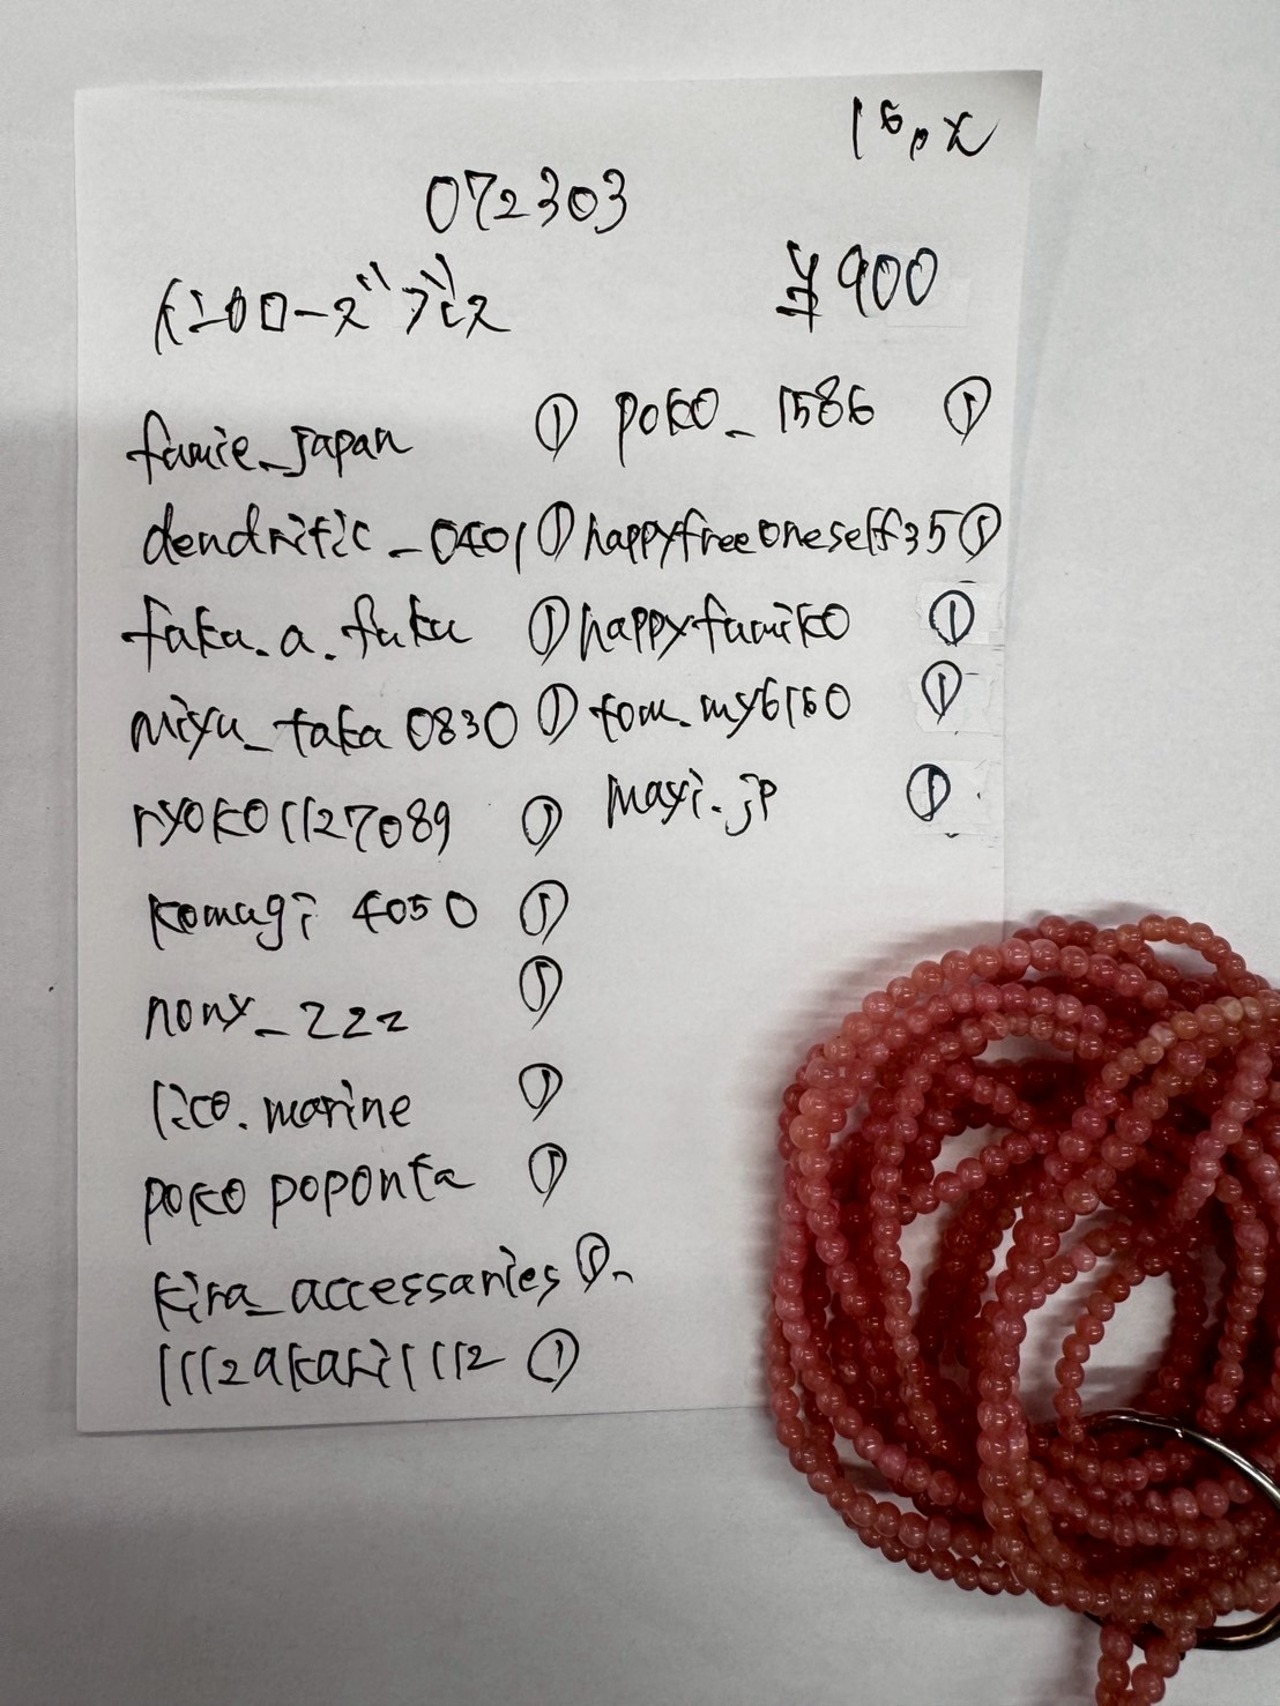 16px
072303
インカローズブレス ¥900
famie_japan ①
dendritic_0401 ①
taka.a.fuku ①
miyu_taka0830 ①
ryoko1127089 ①
komagi4050 ①
nony_222 ①
lico.marine ①
pokopoponta ①
kira_accessaries ①
1112akari1112 ①
poko_1586 ①
happyfreeoneself35 ①
happyfumiko ①
tom.my6160 ①
mayi.jp ①